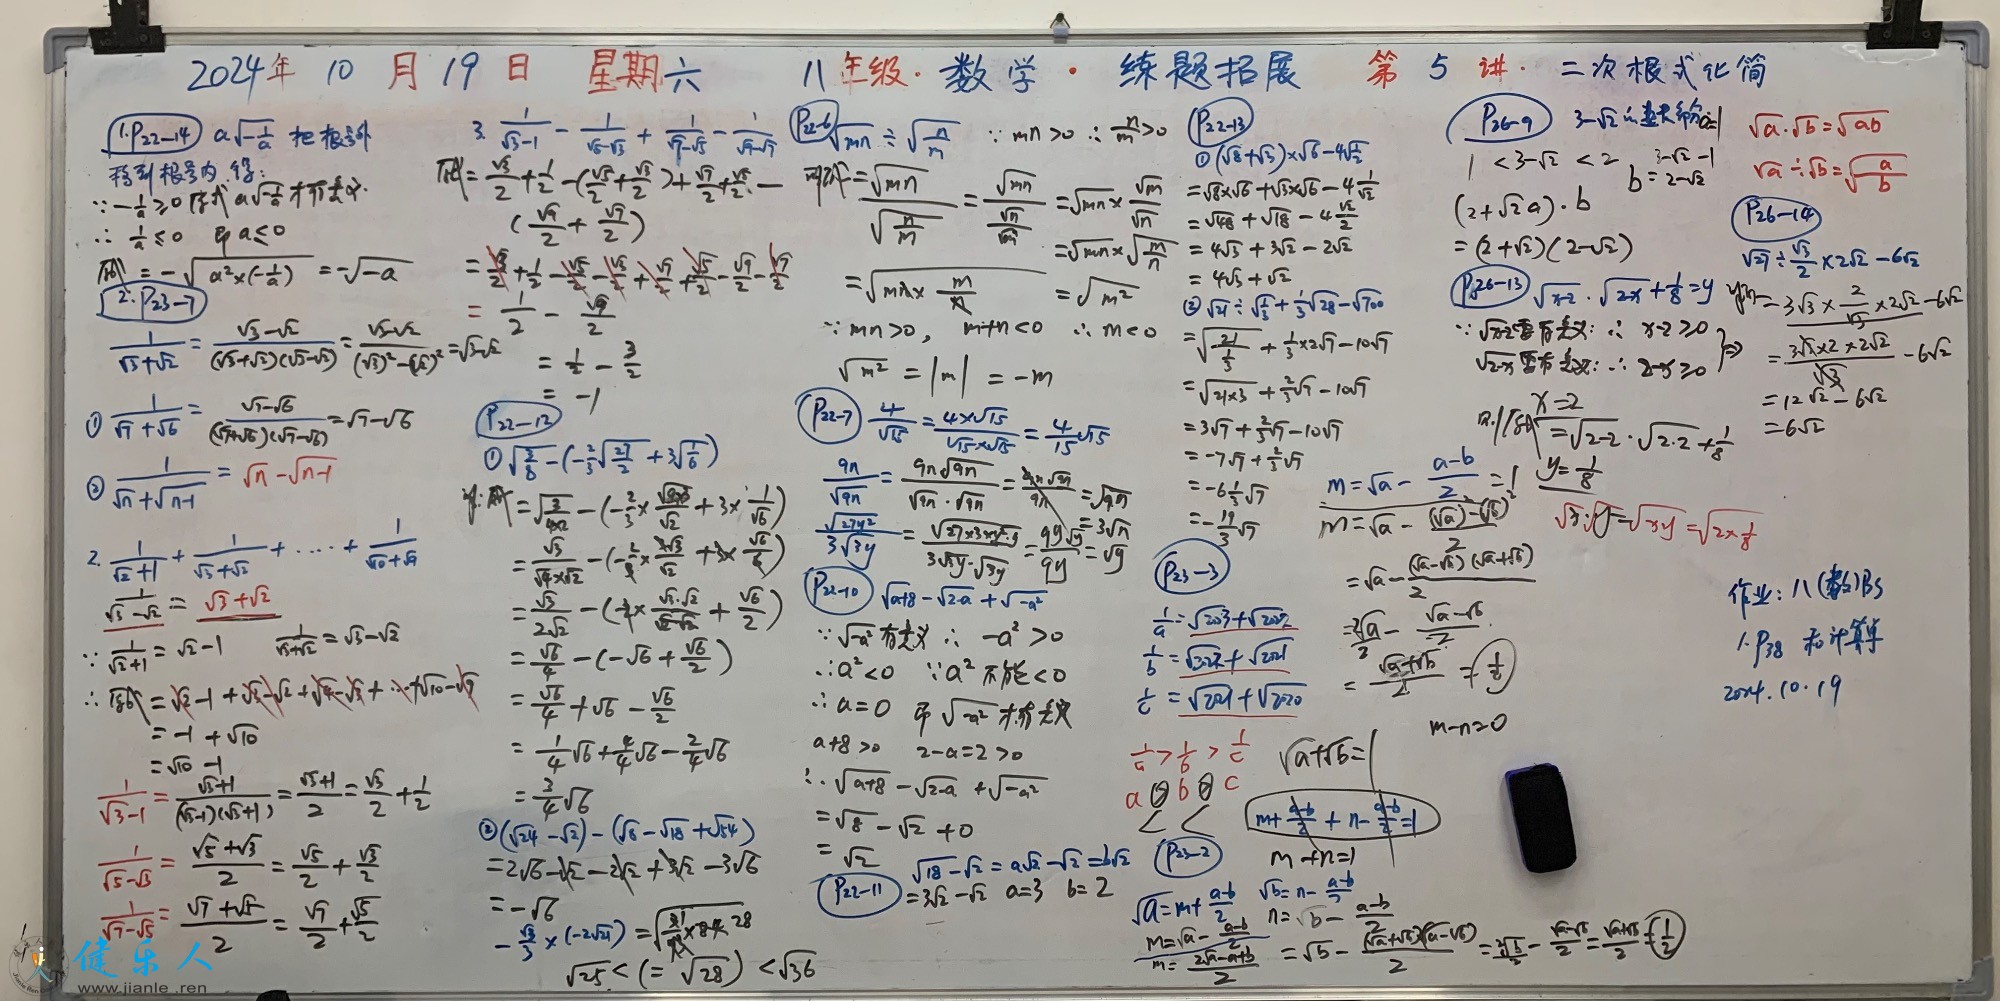 2024年 10 月 19 日 星期六 八年级·数学·练题拓展 第 5 讲· 二次根式化简
1.P22-14 a√(-1/a) 把根号外
移到根号内,得:
∵ -1/a ≥0 原式 a√(-1/a) 才有意义.
∴ 1/a ≤0 即 a≤0
原式 = -√(a²×(-1/a)) = -√(-a)
2.P23-7
1/(√3+√2) = (√3-√2)/((√3+√2)(√3-√2)) = (√3-√2)/((√3)²-(√2)²) = √3-√2
① 1/(√7+√6) = (√7-√6)/((√7+√6)(√7-√6)) = √7-√6
② 1/(√n+√(n-1)) = √n-√(n-1)
2. 1/(√2+1) + 1/(√3+√2) + ···· + 1/(√10+√9)
1/(√3-√2) = √3+√2
∵ 1/(√2+1) = √2-1 1/(√3+√2) = √3-√2
∴ 原式 = √2-1+√3-√2+√4-√3+···+√10-√9
= -1+√10
= √10-1
1/(√3-1) = (√3+1)/((√3-1)(√3+1)) = (√3+1)/2 = √3/2+1/2
1/(√5-√3) = (√5+√3)/2 = √5/2+√3/2
1/(√7-√5) = (√7+√5)/2 = √7/2+√5/2
3. 1/(√3-1) - 1/(√5-√3) + 1/(√7-√5) - 1/(√9-√7)
原式 = √3/2+1/2-(√5/2+√3/2)+√7/2+√5/2-
(√9/2+√7/2)
= √3/2+1/2-√5/2-√3/2+√7/2+√5/2-√9/2-√7/2
= 1/2 - √9/2
= 1/2 - 3/2
= -1
P22-12
① √(3/8)-(-2/3√(27/2)+3√(1/6))
= √3/(√4×√2)-(-2/3×3√3/√2+3×√6/6)
= √3/(2√2)
= √6/4-(-√6+√6/2)
= √6/4+√6-√6/2
= 1/4√6+4/4√6-2/4√6
= 3/4√6
② (√24-√2)-(√8-√18+√54)
= 2√6-√2-2√2+3√2-3√6
= -√6
-√3/3×(-2√21)
√25<(=√28)<√36
P22-6 √mn÷√(n/m) ∵ mn>0 ∴ n/m>0
= √mn/√(n/m) = √mn/(√n/√m) = √mn×√m/√n
= √mn×√(m/n)
= √(mn×m/n) = √m²
∵ mn>0, m+n<0 ∴ m<0
√m² = |m| = -m
P22-7 4/√15 = (4×√15)/(√15×√15) = 4/15√15
9n/√9n = 9n√9n/(√9n·√9n) = 9n√9n/9n = √9n
= 3√n
√27y²/(3√3y) = √(27×3×y²·y)/(3√3y·√3y) = 9y√y/9y = √y
P22-10 √(a+8)-√(2-a)+√(-a²)
∵ √(-a²) 有意义 ∴ -a²>0
∴ a²<0 ∵ a²不能<0
∴ a=0 即 √(-a²) 才有意义
a+8>0 2-a=2>0
∴ √(a+8)-√(2-a)+√(-a²)
= √8-√2+0
= √2
P22-11 √18-√2=a√2-√2=b√2
= 3√2-√2 a=3 b=2
P22-13
① (√8+√3)×√6-4√(1/2)
= √8×√6+√3×√6-4 1/√2
= √48+√18-4 √2/2
= 4√3+3√2-2√2
= 4√3+√2
② √21÷√(1/3)+1/3√28-√700
= √(21/(1/3))+1/3×2√7-10√7
= √(21×3)+2/3√7-10√7
= 3√7+2/3√7-10√7
= -7√7+2/3√7
= -6 1/3√7
= -19/3√7
P23-3
1/a = √2023+√2022
1/b = √2022+√2021
1/c = √2021+√2020
1/a > 1/b > 1/c
a b c
< <
P23-2
√a=m+(a-b)/2 √b=n-(a-b)/2
m=√a-(a-b)/2 n=√b-(a-b)/2
m=(2√a-a+b)/2 = √b-(√a+√b)(√a-√b)/2 = 2√b/2-(√a-√b)/2 = (√a+√b)/2 = 1/2
√a+√b=1
m+(a-b)/2+n-(a-b)/2=1
m+n=1
m=√a-(a-b)/2=1
m=√a-((√a)²-(√b)²)/2
= √a-(√a-√b)(√a+√b)/2
= 2√a/2-(√a-√b)/2
= (√a+√b)/2 = 1/2
m-n=0
P26-9 3-√2的整数部分a=1
1<3-√2<2, b=3-√2-1=2-√2
(2+√2a)·b
= (2+√2)(2-√2)
P26-13 √(x-2)·√(2-x)+1/8=y
∵ √(x-2)要有意义: ∴ x-2≥0
√(2-x)要有意义: ∴ 2-x≥0 } ⇒
x=2
= √(2-2)·√(2-2)+1/8
y=1/8
√x·√y=√xy=√(2×1/8)
√a·√b=√ab
√a÷√b=√(a/b)
P26-14
√27÷√3/2×2√2-6√2
= 3√3×2/√3×2√2-6√2
= (3√3×2×2√2)/√3-6√2
= 12√2-6√2
= 6√2
作业: 八(数)BS
1.P38 和计算单
2024.10.19
健乐人
www.jianle.ren